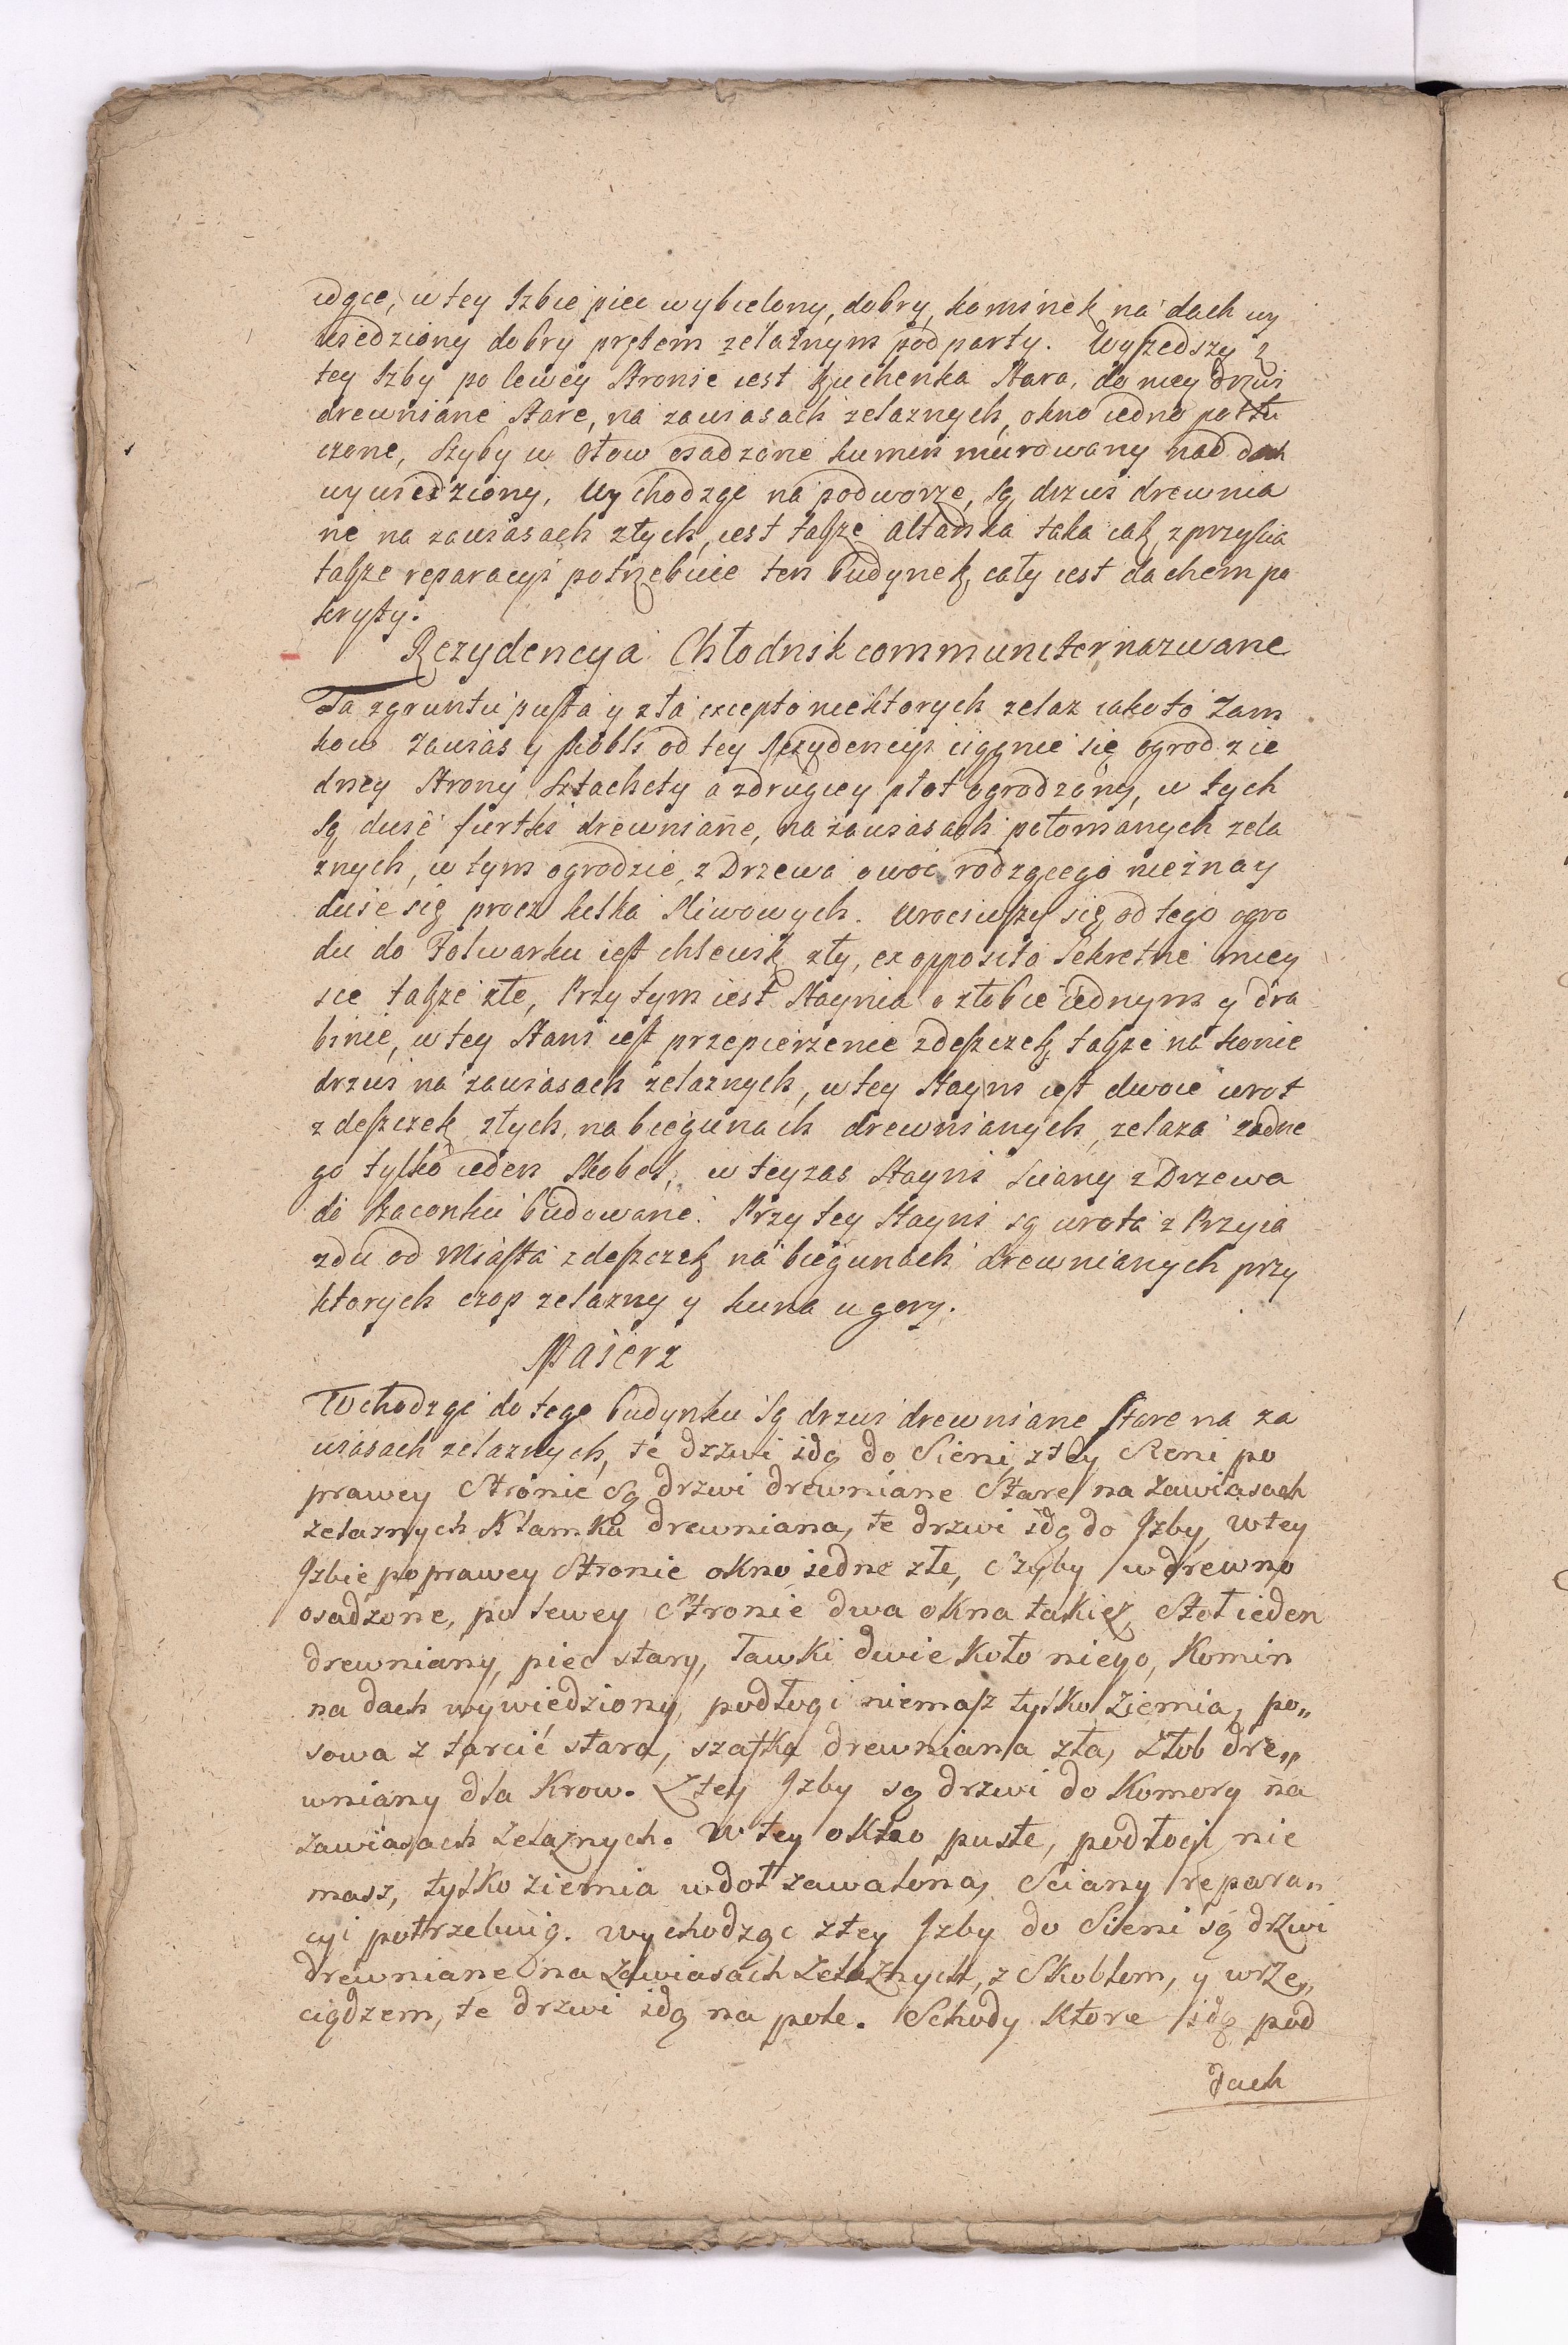 idące, w tey Izbie piec wybielony, dobry, kominek na dach wy
wiedziony dobry prętem zelaznym podparty. Wyszedszy z
tey Izby po lewey stronie iest kuchenka stara, do niey drzwi
drewniane stare, na zawiasach zelaznych, okno iedno potłu
czone, szyby w ołow osadzone kumin murowany nad dach
wywiedziony, wychodząc na podworze, są drzwi drewnia
ne na zawiasach złych, iest także altanka taka iak z przyscia
także reparacyi potrzebuie ten budynek cały iest dachem po
kryty.
Rezydencya Chłodnik communiter nazwane
Ta z gruntu pusta y zła excepto niektorych zelaz iako to zam
kow zawias y skobli od tey Rezydencyi ciągnie się ogrod z ie
dney strony sztachety a z drugiey płot ogrodzony, w tych
są dwie furtki drewniane, na zawiasach połomanych zela
znych, w tym ogrodzie, z Drzewa owoc rodzącego nieznay
duie się procz kilka sliwowych. wrociwszy się od tego ogro
du do Folwarku iest chlewik zły, ex opposito sekretne miey
sce także złe, Przy tym iest staynia o złobie iednym y dra
binie, w tey stani iest przepierzenie z deszczek także na konie
drzwi na zawiasach zelaznych, w tey stayni iest dwoie wrot
z deszczek złych, na biegunach drewnianych, zelaza zadne
go tylko ieden skobel, w tey zas stayni sciany z Drzewa
do szaconku budowane. Przy tey stayni są wrota z Przyia
zdu od Miasta z deszczek na biegunach drewnianych przy
ktorych czop zelazny y kuna u gory.
Pasierz
Wchodząc do tego budynku są drzwi drewniane stare na za
wiasach zelaznych, te drzwi idą do Sieni, z tey Sieni po
prawey Stronie są drzwi drewniane stare na zawiasach
zelaznych klamka drewniana, te drzwi idą do Izby, w tey
Izbie po prawey Stronie okno iedne złe, Szyby w drewno
osadzone, po lewey Stronie dwa okna takież, Stoł ieden
drewniany, piec stary, ławki dwie koło niego, Komin
na dach wywiedziony, podłogi niemasz tylko ziemia, po„
sowa z tarcić stara, szafka drewniana zła, żłob dre„
wniany dla Krow. Z tey Izby są drzwi do Komory na
zawiasach zelaznych. W tey okno puste, podłogi nie
masz, tylko ziemia w doł zawalona, Sciany repara„
cyi potrzebuią. Wychodząc z tey Izby do Sieni są drzwi
drewniane na zawiasach zelaznych, z Skoblem, y wrze„
ciądzem, te drzwi idą na pole. Schody ktore idą pod
dach